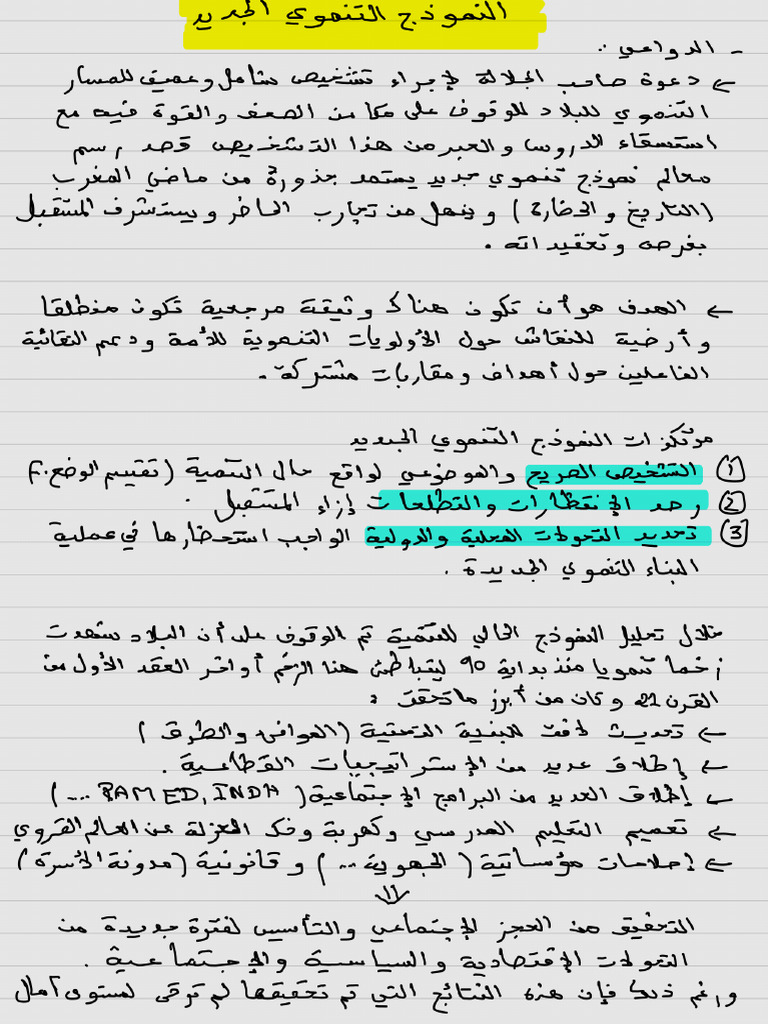 النموذج التنموي الجديد
- الدواعي :
← دعوة صاحب الجلالة لإجراء تشخيص شامل وعميق للمسار
التنموي للبلاد للوقوف على مكامن الضعف والقوة فيه مع
استسقاء الدروس والعبر من هذا التشخيص قصد رسم
معالم نموذج تنموي جديد يستمد جذوره من ماضي المغرب
(التاريخ والحضارة) وينهل من تجارب الحاضر ويستشرف المستقبل
بفرصه وتعقيداته .
← الهدف هو أن تكون هناك وثيقة مرجعية تكون منطلقا
وأرضية للنقاش حول الأولويات التنموية للأمة ودعم التقائية
الفاعلين حول أهداف ومقاربات مشتركة .
مرتكزات النموذج التنموي الجديد
① التشخيص الصريح والموضوعي لواقع حال التنمية (تقييم الوضع .F
② رصد الإنتظارات والتطلعات إزاء المستقبل .
③ تحديد التحولات المحلية والدولية الواجب استحضارها في عملية
البناء التنموي الجديدة .
خلال تحليل النموذج الحالي للتنمية تم الوقوف على أن البلاد شهدت
زخما تنمويا منذ بداية 90 ليتباطئ هذا الزخم أواخر العقد الأول من
القرن 21 وكان من أبرز ما تحقق :
← تحديث لافت للبنية التحتية (الموانئ والطرق)
← إطلاق عديد من الإستراتيجيات القطاعية .
← إطلاق العديد من البرامج الإجتماعية (RAMED, INDH ....)
← تعميم التعليم المدرسي وكهربة وفك العزلة عن العالم القروي
← إصلاحات مؤسساتية (الجهوية ...) وقانونية (مدونة الأسرة)
⇓
التخفيف من العجز الإجتماعي والتأسيس لفترة جديدة من
التحولات الإقتصادية والسياسية والإجتماعية .
ورغم ذلك فإن هذه النتائج التي تم تحقيقها لم ترقى لمستوى آمال